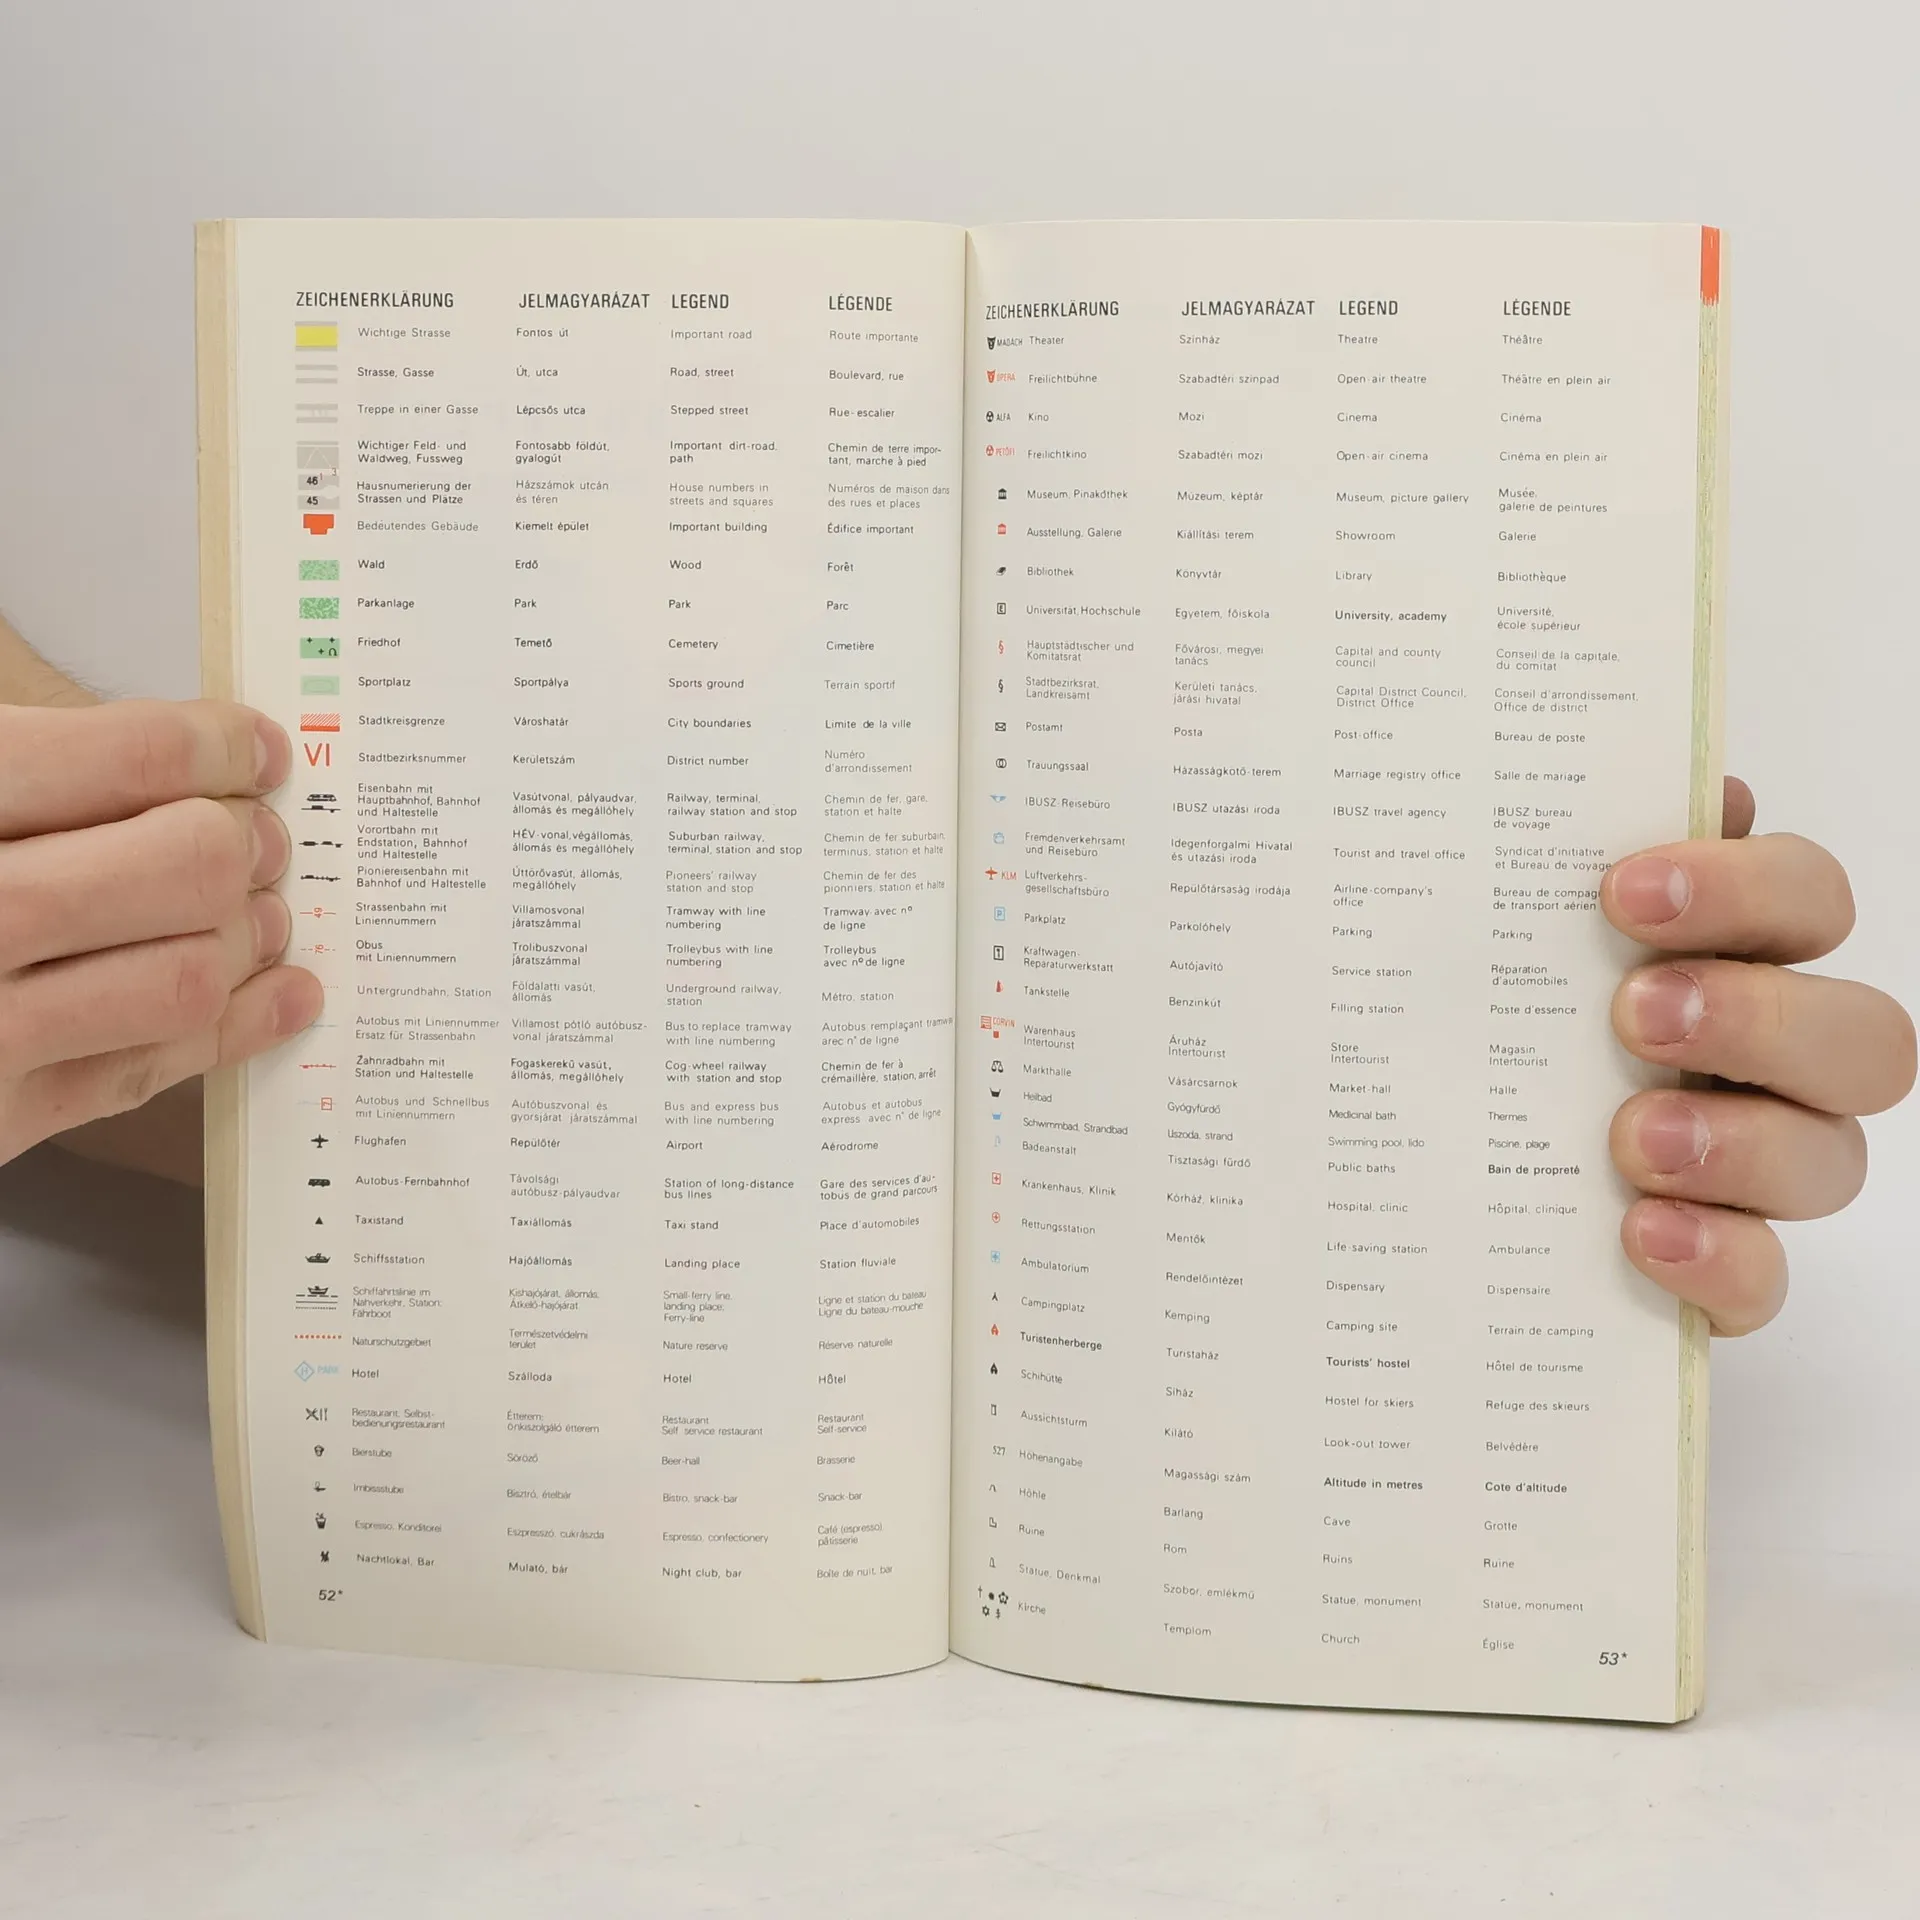 ZEICHENERKLÄRUNG JELMAGYARÁZAT LEGEND LÉGENDE
Wichtige Strasse Fontos út Important road Route importante
Strasse, Gasse Út, utca Road, street Boulevard, rue
Treppe in einer Gasse Lépcsős utca Stepped street Rue-escalier
Wichtiger Feld- und Fontosabb földút, Important dirt-road, Chemin de terre impor-
Waldweg, Fussweg gyalogút path tant, marche à pied
46 Hausnumerierung der Házszámok utcán House numbers in Numéros de maison dans
45 Strassen und Plätze és téren streets and squares des rues et places
Bedeutendes Gebäude Kiemelt épület Important building Édifice important
Wald Erdő Wood Forêt
Parkanlage Park Park Parc
Friedhof Temető Cemetery Cimetière
Sportplatz Sportpálya Sports ground Terrain sportif
Stadtkreisgrenze Városhatár City boundaries Limite de la ville
VI Stadtbezirksnummer Kerületszám District number Numéro
d'arrondissement
Eisenbahn mit
Hauptbahnhof, Bahnhof Vasútvonal, pályaudvar, Railway, terminal, Chemin de fer, gare,
und Haltestelle állomás és megállóhely railway station and stop station et halte
Vorortbahn mit HÉV-vonal, végállomás, Suburban railway, Chemin de fer suburbain,
Endstation, Bahnhof állomás és megállóhely terminal, station and stop terminus, station et halte
und Haltestelle
Pioniereisenbahn mit Úttörővasút, állomás, Pioneers' railway Chemin de fer des
Bahnhof und Haltestelle megállóhely station and stop pionniers, station et halte
49 Strassenbahn mit Villamosvonal Tramway with line Tramway avec nº
Liniennummern járatszámmal numbering de ligne
76 Obus Trolibuszvonal Trolleybus with line Trolleybus
mit Liniennummern járatszámmal numbering avec nº de ligne
Untergrundbahn, Station Földalatti vasút, Underground railway, Métro, station
állomás station
Autobus mit Liniennummer Villamost pótló autóbusz- Bus to replace tramway Autobus remplaçant tramway
Ersatz für Strassenbahn vonal járatszámmal with line numbering arec n° de ligne
Zahnradbahn mit Fogaskerekű vasút, Cog-wheel railway Chemin de fer à
Station und Haltestelle állomás, megállóhely with station and stop crémaillère, station, arrêt
Autobus und Schnellbus Autóbuszvonal és Bus and express bus Autobus et autobus
mit Liniennummern gyorsjárat járatszámmal with line numbering express avec n° de ligne
Flughafen Repülőtér Airport Aérodrome
Autobus-Fernbahnhof Távolsági Station of long-distance Gare des services d'au-
autóbusz-pályaudvar bus lines tobus de grand parcours
Taxistand Taxiállomás Taxi stand Place d'automobiles
Schiffsstation Hajóállomás Landing place Station fluviale
Schiffahrtslinie im Kishajójárat, állomás, Small-ferry line, Ligne et station du bateau
Nahverkehr, Station; Átkelő-hajójárat landing place; Ligne du bateau-mouche
Fährboot Ferry-line
Naturschutzgebiet Természetvédelmi Nature reserve Réserve naturelle
terület
H PARK Hotel Szálloda Hotel Hôtel
Restaurant, Selbst- Étterem; Restaurant Restaurant
bedienungsrestaurant önkiszolgáló étterem Self service restaurant Self-service
Bierstube Söröző Beer-hall Brasserie
Imbissstube Bisztró, ételbár Bistro, snack-bar Snack-bar
Espresso, Konditorei Eszpresszó, cukrászda Espresso, confectionery Café (espresso),
pâtisserie
Nachtlokal, Bar Mulató, bár Night club, bar Boîte de nuit, bar
52*
ZEICHENERKLÄRUNG JELMAGYARÁZAT LEGEND LÉGENDE
MADÁCH Theater Színház Theatre Théâtre
OPERA Freilichtbühne Szabadtéri színpad Open-air theatre Théâtre en plein air
ALFA Kino Mozi Cinema Cinéma
PETŐFI Freilichtkino Szabadtéri mozi Open-air cinema Cinéma en plein air
Museum, Pinakothek Múzeum, képtár Museum, picture gallery Musée,
galerie de peintures
Ausstellung, Galerie Kiállítási terem Showroom Galerie
Bibliothek Könyvtár Library Bibliothèque
E Universität, Hochschule Egyetem, főiskola University, academy Université,
école supérieur
§ Hauptstädtischer und Fővárosi, megyei Capital and county Conseil de la capitale,
Komitatsrat tanács council du comitat
§ Stadtbezirksrat, Kerületi tanács, Capital District Council, Conseil d'arrondissement,
Landkreisamt járási hivatal District Office Office de district
Postamt Posta Post-office Bureau de poste
Trauungssaal Házasságkötő-terem Marriage registry office Salle de mariage
IBUSZ-Reisebüro IBUSZ utazási iroda IBUSZ travel agency IBUSZ bureau
de voyage
Fremdenverkehrsamt Idegenforgalmi Hivatal Tourist and travel office Syndicat d'initiative
und Reisebüro és utazási iroda et Bureau de voyage
KLM Luftverkehrs- Repülőtársaság irodája Airline-company's Bureau de compag
gesellschaftsbüro office de transport aérien
P Parkplatz Parkolóhely Parking Parking
Kraftwagen- Autójavító Service station Réparation
Reparaturwerkstatt d'automobiles
Tankstelle Benzinkút Filling station Poste d'essence
CORVIN Warenhaus Áruház Store Magasin
Intertourist Intertourist Intertourist Intertourist
Markthalle Vásárcsarnok Market-hall Halle
Heilbad Gyógyfürdő Medicinal bath Thermes
Schwimmbad, Strandbad Uszoda, strand Swimming pool, lido Piscine, plage
Badeanstalt Tisztasági fürdő Public baths Bain de propreté
Krankenhaus, Klinik Kórház, klinika Hospital, clinic Hôpital, clinique
Rettungsstation Mentők Life-saving station Ambulance
Ambulatorium Rendelőintézet Dispensary Dispensaire
Campingplatz Kemping Camping site Terrain de camping
Turistenherberge Turistaház Tourists' hostel Hôtel de tourisme
Schihütte Síház Hostel for skiers Refuge des skieurs
Aussichtsturm Kilátó Look-out tower Belvédère
527 Höhenangabe Magassági szám Altitude in metres Cote d'altitude
Höhle Barlang Cave Grotte
Ruine Rom Ruins Ruine
Statue, Denkmal Szobor, emlékmű Statue, monument Statue, monument
Kirche Templom Church Église
53*